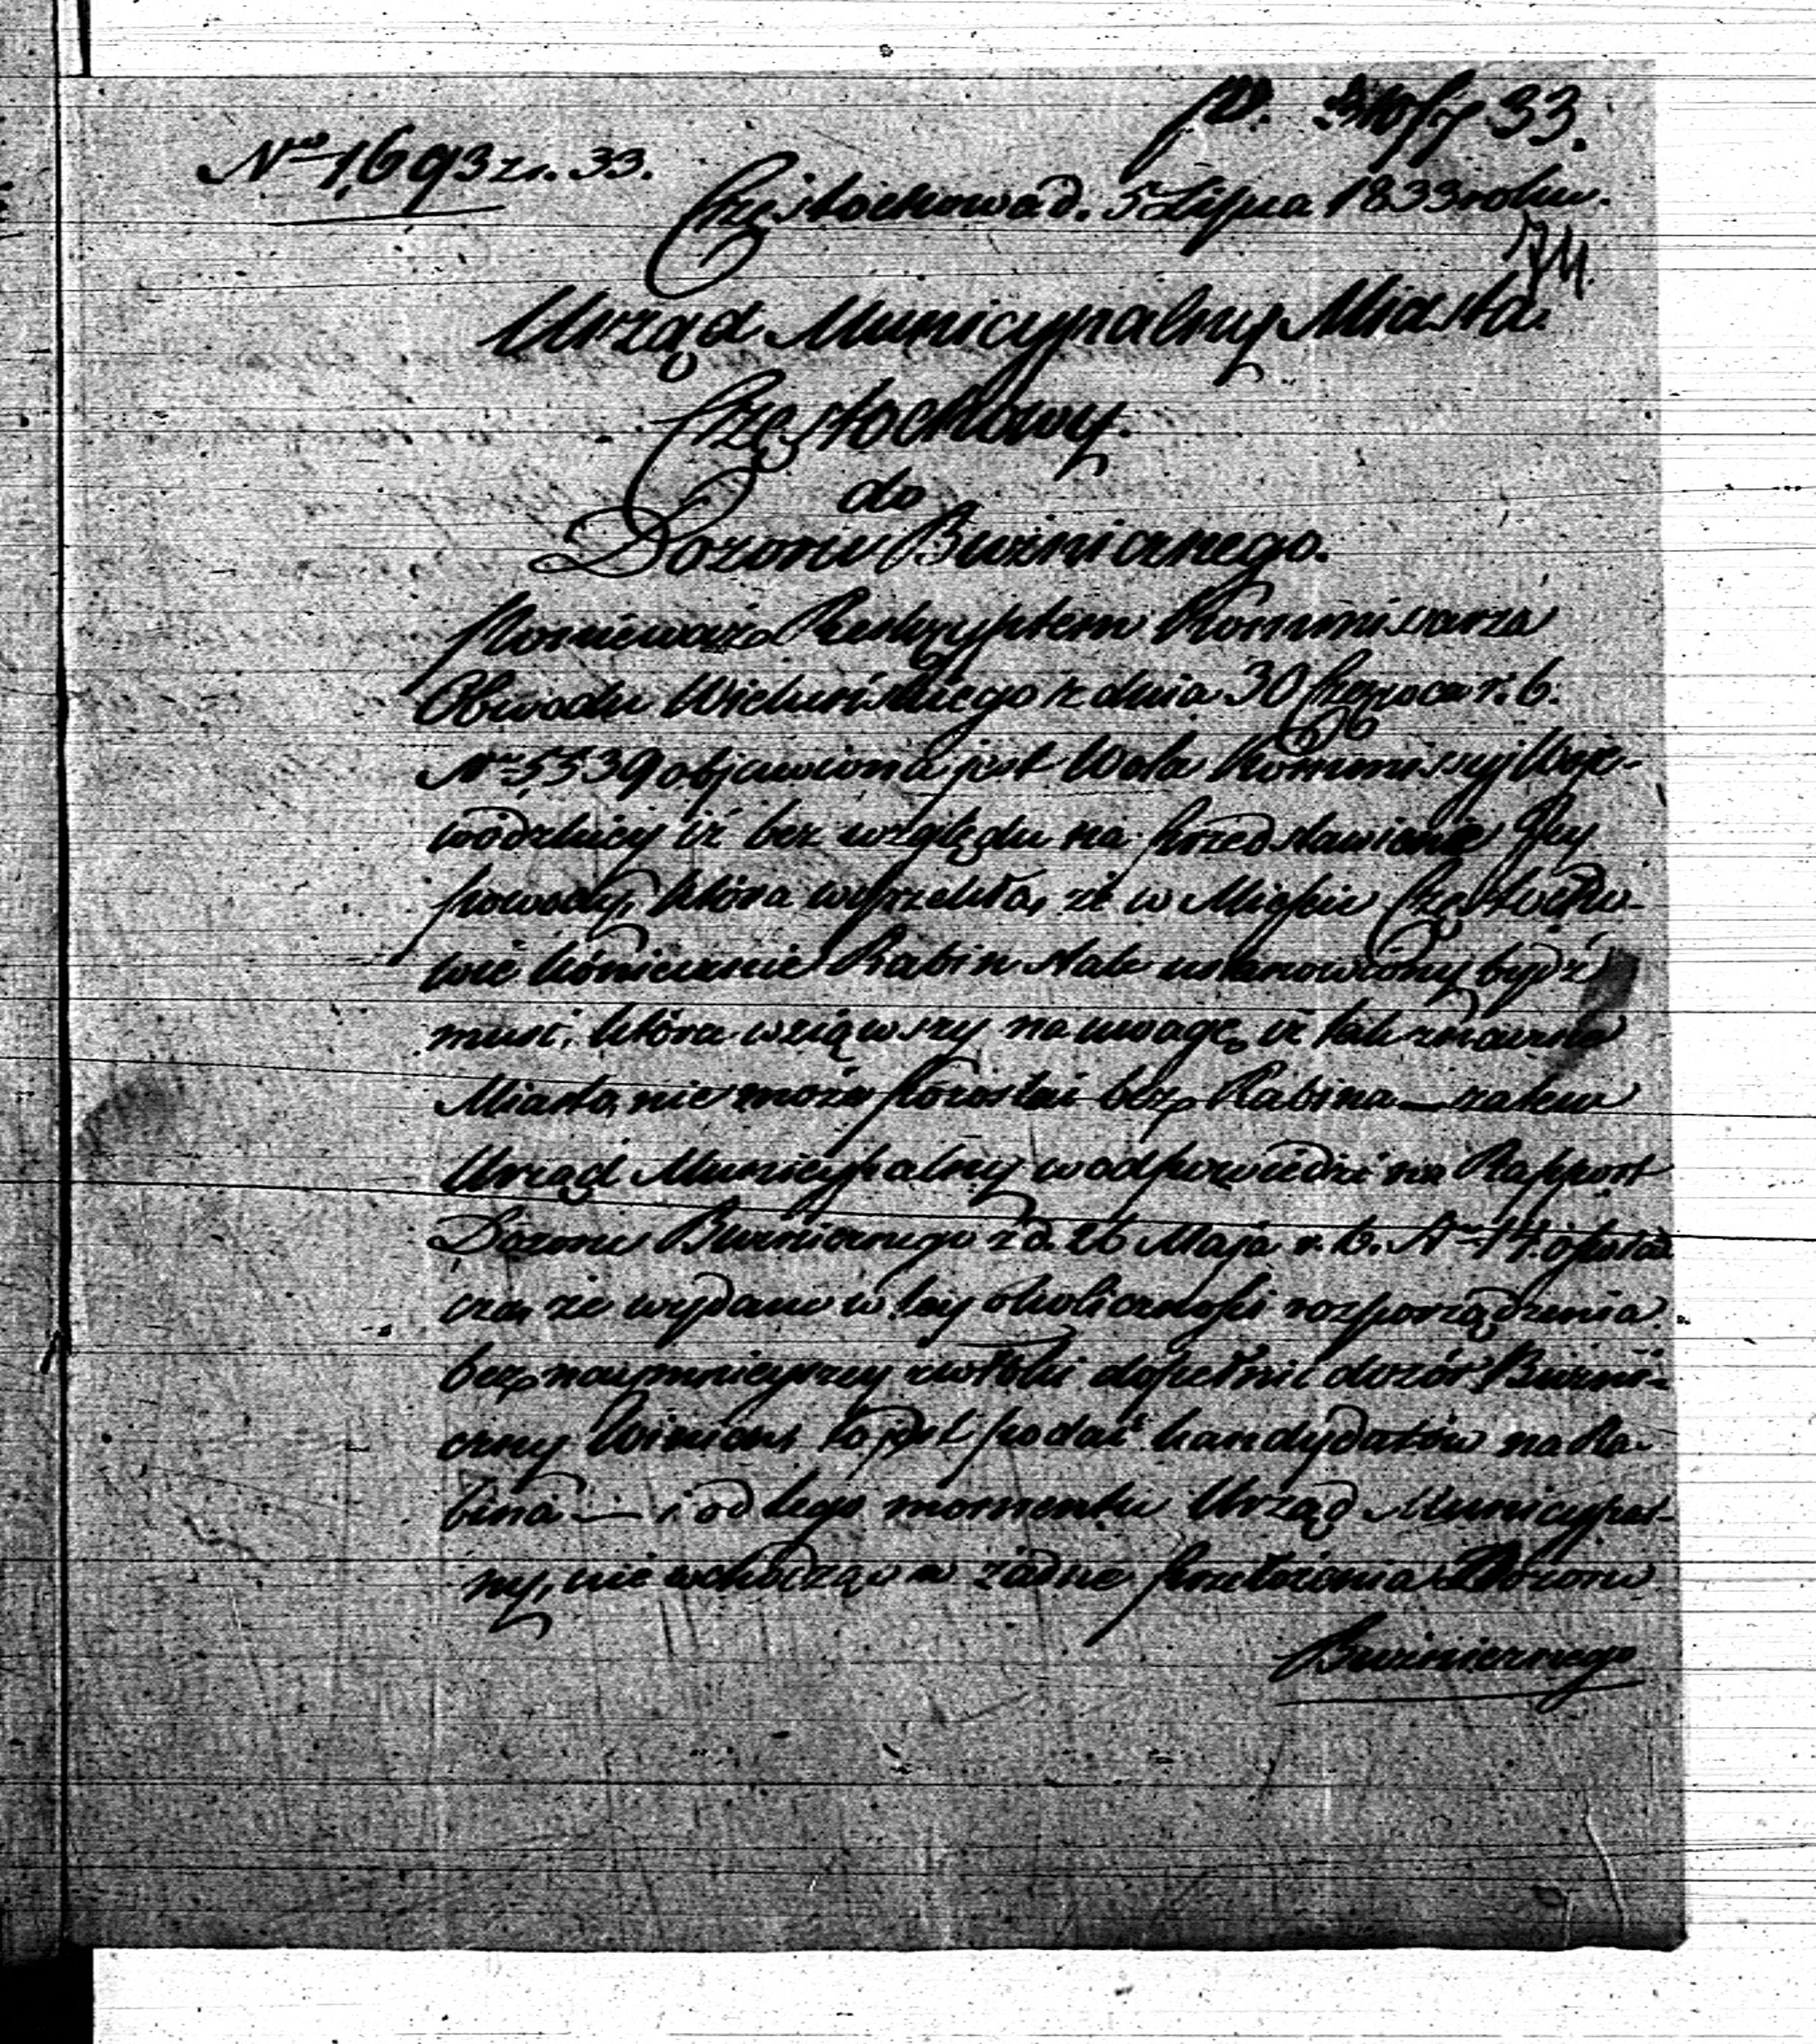 33.
No 1,693 zr. 33.
Częstochowa d. 5 Lipca 1833 roku.
Urząd Municypalny Miasta
Częstochowy.
do
Dozoru Bużnicznego.
Ponieważ Reskryptem Kommissarza
Obwodu Wieluńskiego z dnia 30 Czerwca r. b.
No 5,539 objawiona jest Wola Kommissyi Woje-
wódzkiey iż bez względu na przedstawienie Jey
powody, która wyrzekła, że w Mieście Częstocho-
wie koniecznie Rabin stale ustanowiony bydź
musi, która wziąwszy na uwagę, iż tak znaczne
Miasto, nie może pozostać bez Rabina — zatem
Urząd Municypalny w odpowiedzi na Rapport
Dozoru Bużnicznego z d. 26 Maja r. b. No 14
że wydane w tey okoliczności rozporządzenia
bez naymnieyszey zwłoki dopełnić dozór Bużni-
czny winien, to jest podać kandydatów na Ra-
bina — i od tego momentu Urząd Municypal-
ny, nie wchodząc w żadne przełożenia Dozoru
Bużnicznego